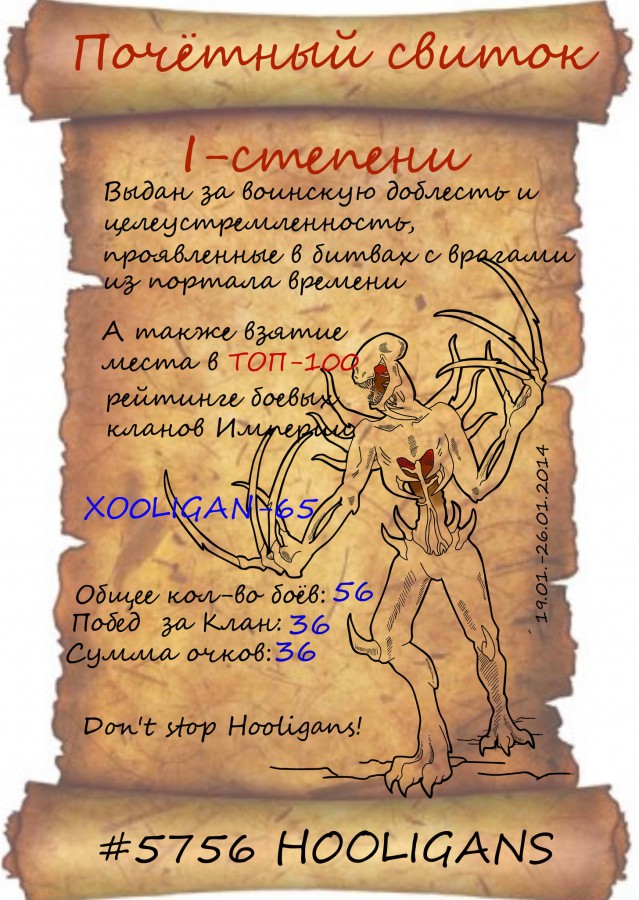 Почётный свиток
I-степени
Выдан за воинскую доблесть и
целеустремленность,
проявленные в битвах с врагами
из портала времени
А также взятие
места в ТОП-100
рейтинге боевых
кланов Империи
XOOLIGAN-65
19.01.-26.01.2014
Общее кол-во боёв: 56
Побед за Клан: 36
Сумма очков: 36
Don't stop Hooligans!
#5756 HOOLIGANS